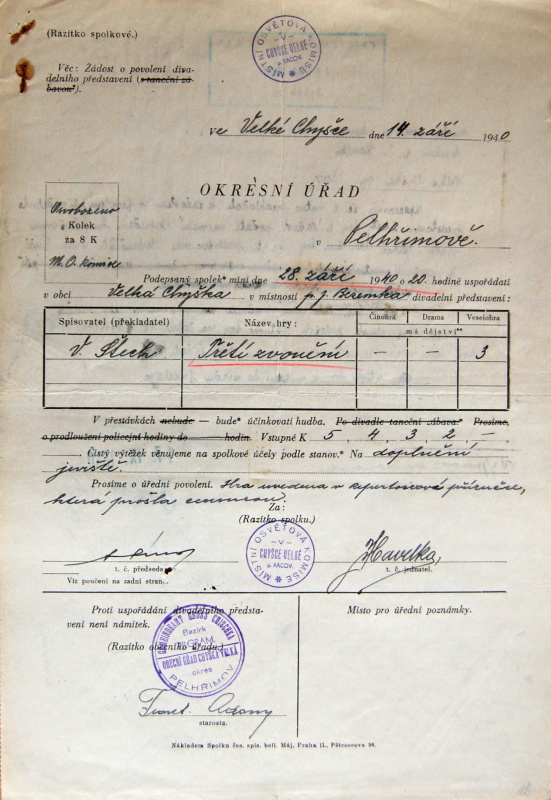 (Razítko spolkové.)
MÍSTNÍ OSVĚTOVÁ KOMISE
-V-
CHYŠCE VELKÉ
p. PACOV.
Věc: Žádost o povolení diva-
delního představení (taneční zá-
bavou*).
ve Velké Chyšce dne 14. září 1940
OKRESNÍ ÚŘAD
v Pelhřimově.
Osvobozeno
Kolek
za 8 K
M. O. komise
Podepsaný spolek* míní dne 28. září 1940 o 20. hodině uspořádati
v obci Velká Chyška v místnosti p. J. Beremka divadelní představení:
Spisovatel (překladatel) Název hry: Činohra Drama Veselohra
má dějství**
V. Štech Třetí zvonění — — 3
V přestávkách nebude — bude* účinkovati hudba. Po divadle taneční zábava.* Prosíme,
o prodloužení policejní hodiny do hodin. Vstupné K 5 4 3 2 —.
Čistý výtěžek věnujeme na spolkové účely podle stanov.* Na doplnění
jeviště.
Prosíme o úřední povolení. Hra uvedena v repertoirové příručce,
která prošla censurou.
Za:
(Razítko spolku.)
MÍSTNÍ OSVĚTOVÁ KOMISE
-V-
CHYŠCE VELKÉ
p. PACOV.
Havelka,
t. č. předseda
t. č. jednatel.
Viz poučení na zadní stran
Proti uspořádání divadelního předsta-
vení není námitek.
Místo pro úřední poznámky.
(Razítko obecního úřadu.)
GEMEINDEAMT GROSS CHISCHKA
Bezirk
PILGRAM.
OBECNÍ ÚŘAD CHYŠKA VELKÁ
okres
PELHŘIMOV
starosta.
Nákladem Spolku čes. spis. bell. Máj, Praha II., Pštrossova 28.